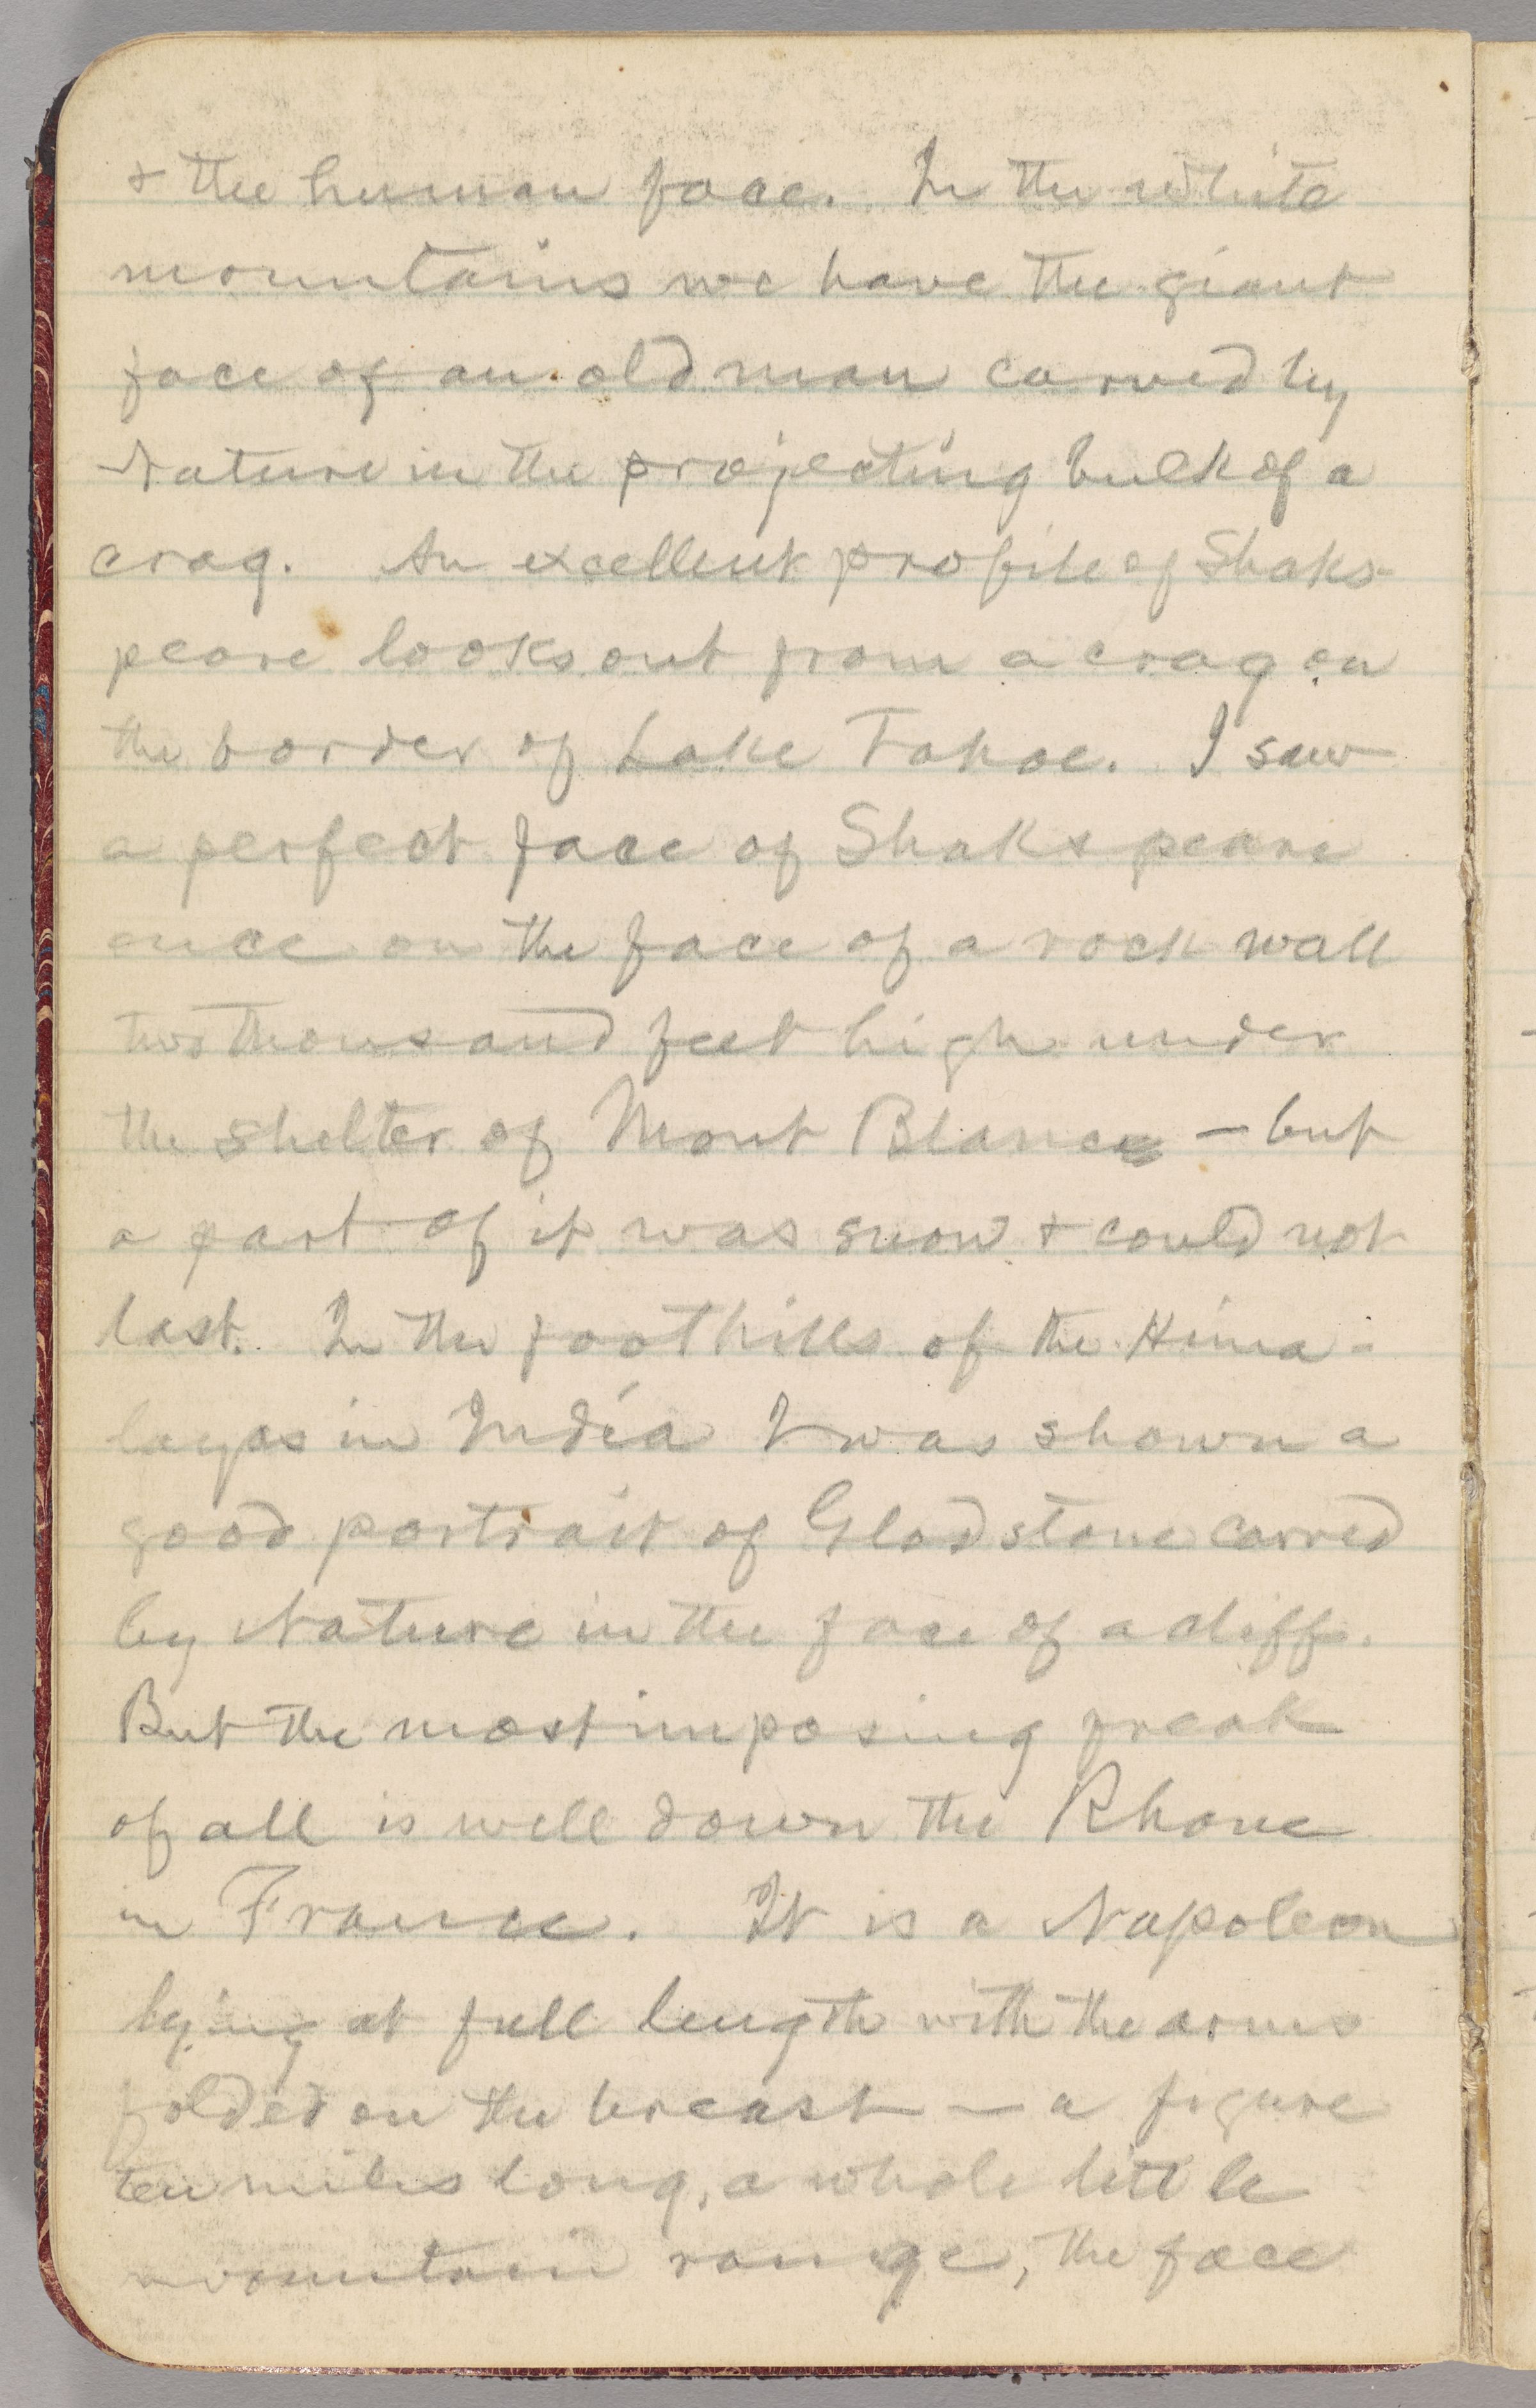 & the human face. In the white
mountains we have the giant
face of an old man carved by
Nature in the projecting bulk of a
crag. An excellent profile of Shaks-
peare looks out from a crag on
the border of Lake Tahoe. I saw
a perfect face of Shakspeare
once on the face of a rock wall
two thousand feet high under
the shelter of Mont Blanc — but
a part of it was snow & could not
last. In the foothills of the Hima-
layas in India I was shown a
good portrait of Gladstone carved
by Nature in the face of a cliff.
But the most imposing freak
of all is well down the Rhone
in France. It is a Napoleon
lying at full length with the arms
folded on the breast — a figure
ten miles long, a whole little
mountain range, the face